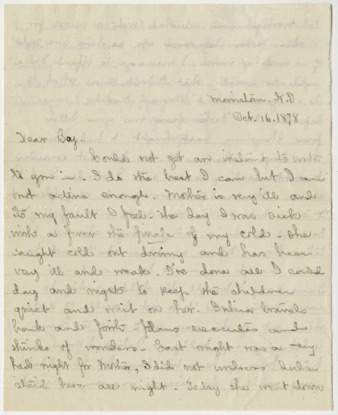 Oct. 16. 1878.
Dear Boy:
Could not get an instant to write
to you — . I do the best I can but I am
not active enough. Mother is very ill and
its my fault I feel. The day I was sick
with a fever the finale of my cold. She
caught cold out driving and has been
very ill and weak. I've done all I could
day and night to keep the children
quiet and wait on her. travels
back and forth. executes and
thinks of wonders. Last night was a very
bad night for Mother, I did not undress
staid here all night. Today she went down